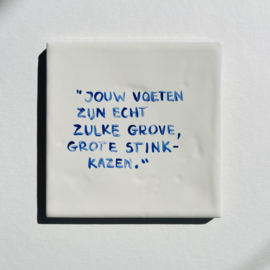 "JOUW VOETEN
ZIJN ECHT
ZULKE GROVE,
GROTE STINK-
KAZEN."